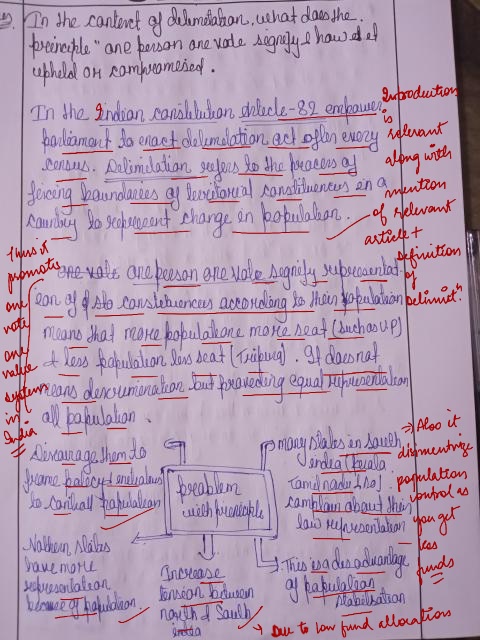 In the context of delimitation, what does the
principle "one person one vote signify & how is it
upheld or compromised.
In the Indian constitution Article-82 empower
parliament to enact delimitation act after every
census. Delimitation refers to the process of
fixing boundaries of territorial constituences in a
country to represent change in population.
Introduction
is
relevant
along with
mention
of relevant
article +
definition
of
delimitn.
Thus it
promotes
one
vote
one
value
system
in
India
one vote one person one vote segnify representat-
ion of constituences according to their population
means that more populations more seat (such as UP)
& less population less seat (Tripura). It does not
means descrimenation but proveding equal representation
all population.
problem
with principle
Discourage them to
frame policy & enetiatives
to contual population
Nothern states
have more
representation
because of population.
Increase
tension between
north & South
India
many states in south
endia (kerala
Tamil nadu)
complain about their
low representation
This is a des advantage
of population
stabelisation
⇒ Also it
dismentrize
population
control as
you get
less
funds
→ Due to low fund allocations